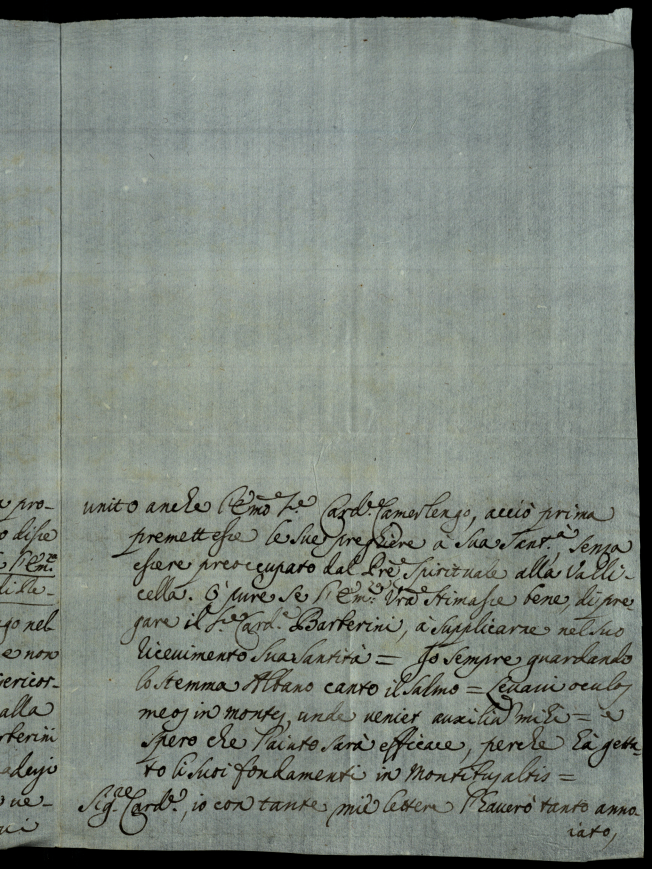 a pro-
o disse
l'Em.ze
di lle-
go nel
e non
sericor-
alla
rberini
adesso
o ve-
ci
unito anche l'Emō S.e Card.e Camerlengo, acciò prima
premettesse le sue preghiere à Sua Sant.à, senza
essere preoccupato dal Prē Spirituale alla Valli-
cella. O' pure se l'Em.a Vrā stimasse bene, di pre-
gare il S.e Card.e Barberini, à supplicarne nel suo
ricevimento Sua Santità = Io sempre guardando
lo stemma Albano canto il Salmo = Levavi oculos
meos in montes, unde veniet auxiliū mihi = e
spero che l'aiuto sarà efficace, perche hà getta-
to li suoi fondamenti in Montibus altis =
Sig.re Card.e, io con tante mie lettere l'haverò tanto anno-
iato,